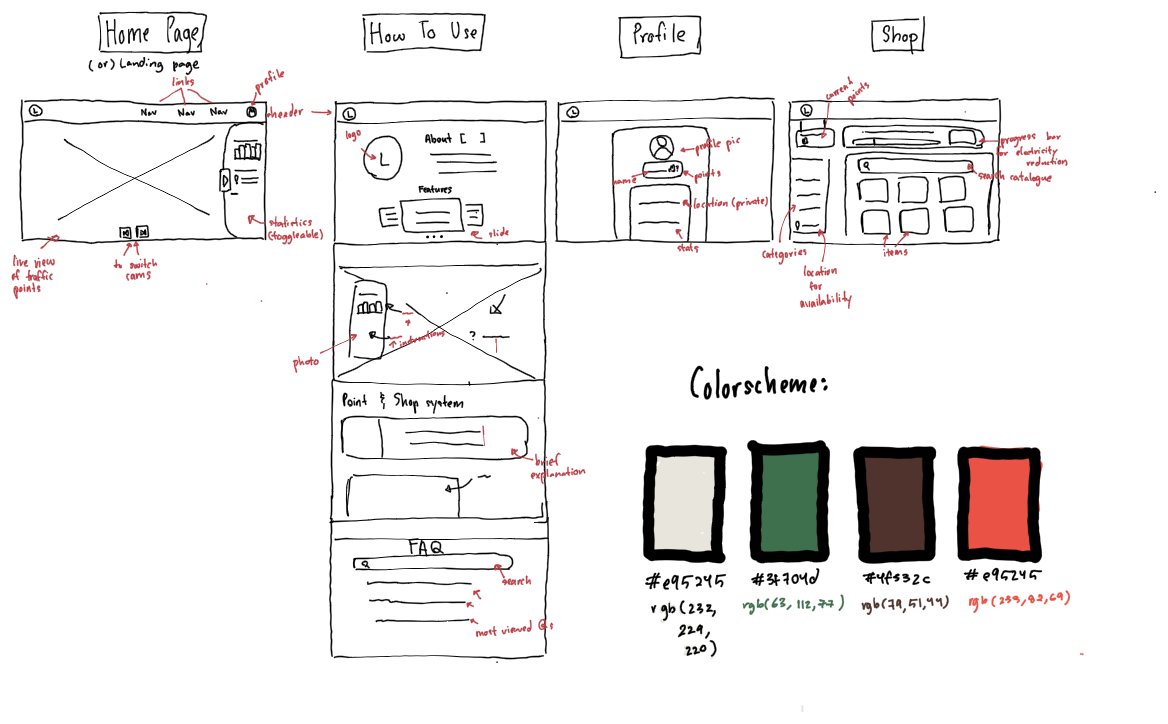 Home Page
(or) Landing page
links
profile
L
Nav Nav Nav
header
statistics
(toggleable)
live view
of traffic
points
to switch
cams
How To Use
L
logo
L
About [ ]
Features
slide
instructions
?
photo
Point & Shop system
brief
explanation
FAQ
search
most viewed Qs
Profile
L
profile pic
name
points
location (private)
stats
Shop
L
current
points
progress bar
for electricity
reduction
search catalogue
categories
location
for
availability
items
Colorscheme:
#e95245
rgb(232,
229,
220)
#3f704d
rgb(63, 112, 77)
#4f332c
rgb(79, 51, 44)
#e95245
rgb(233, 82, 69)